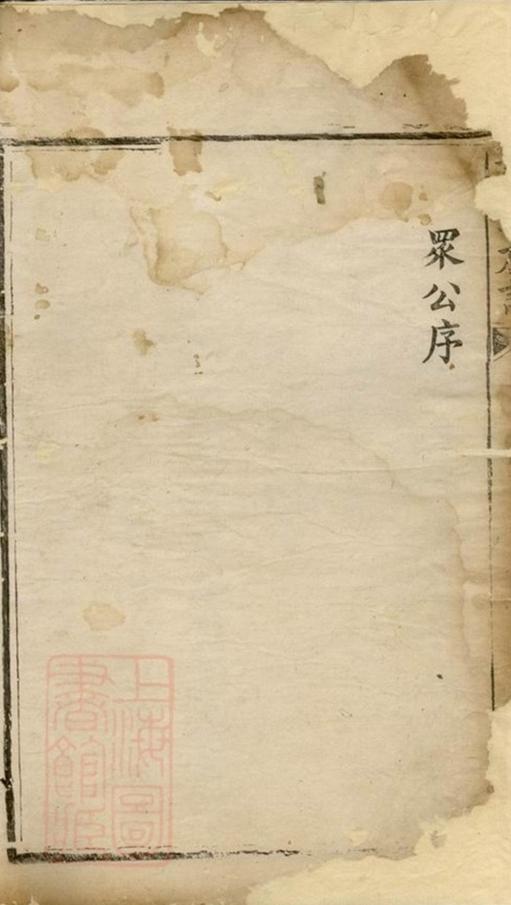 眾公序
上海圖
書館藏